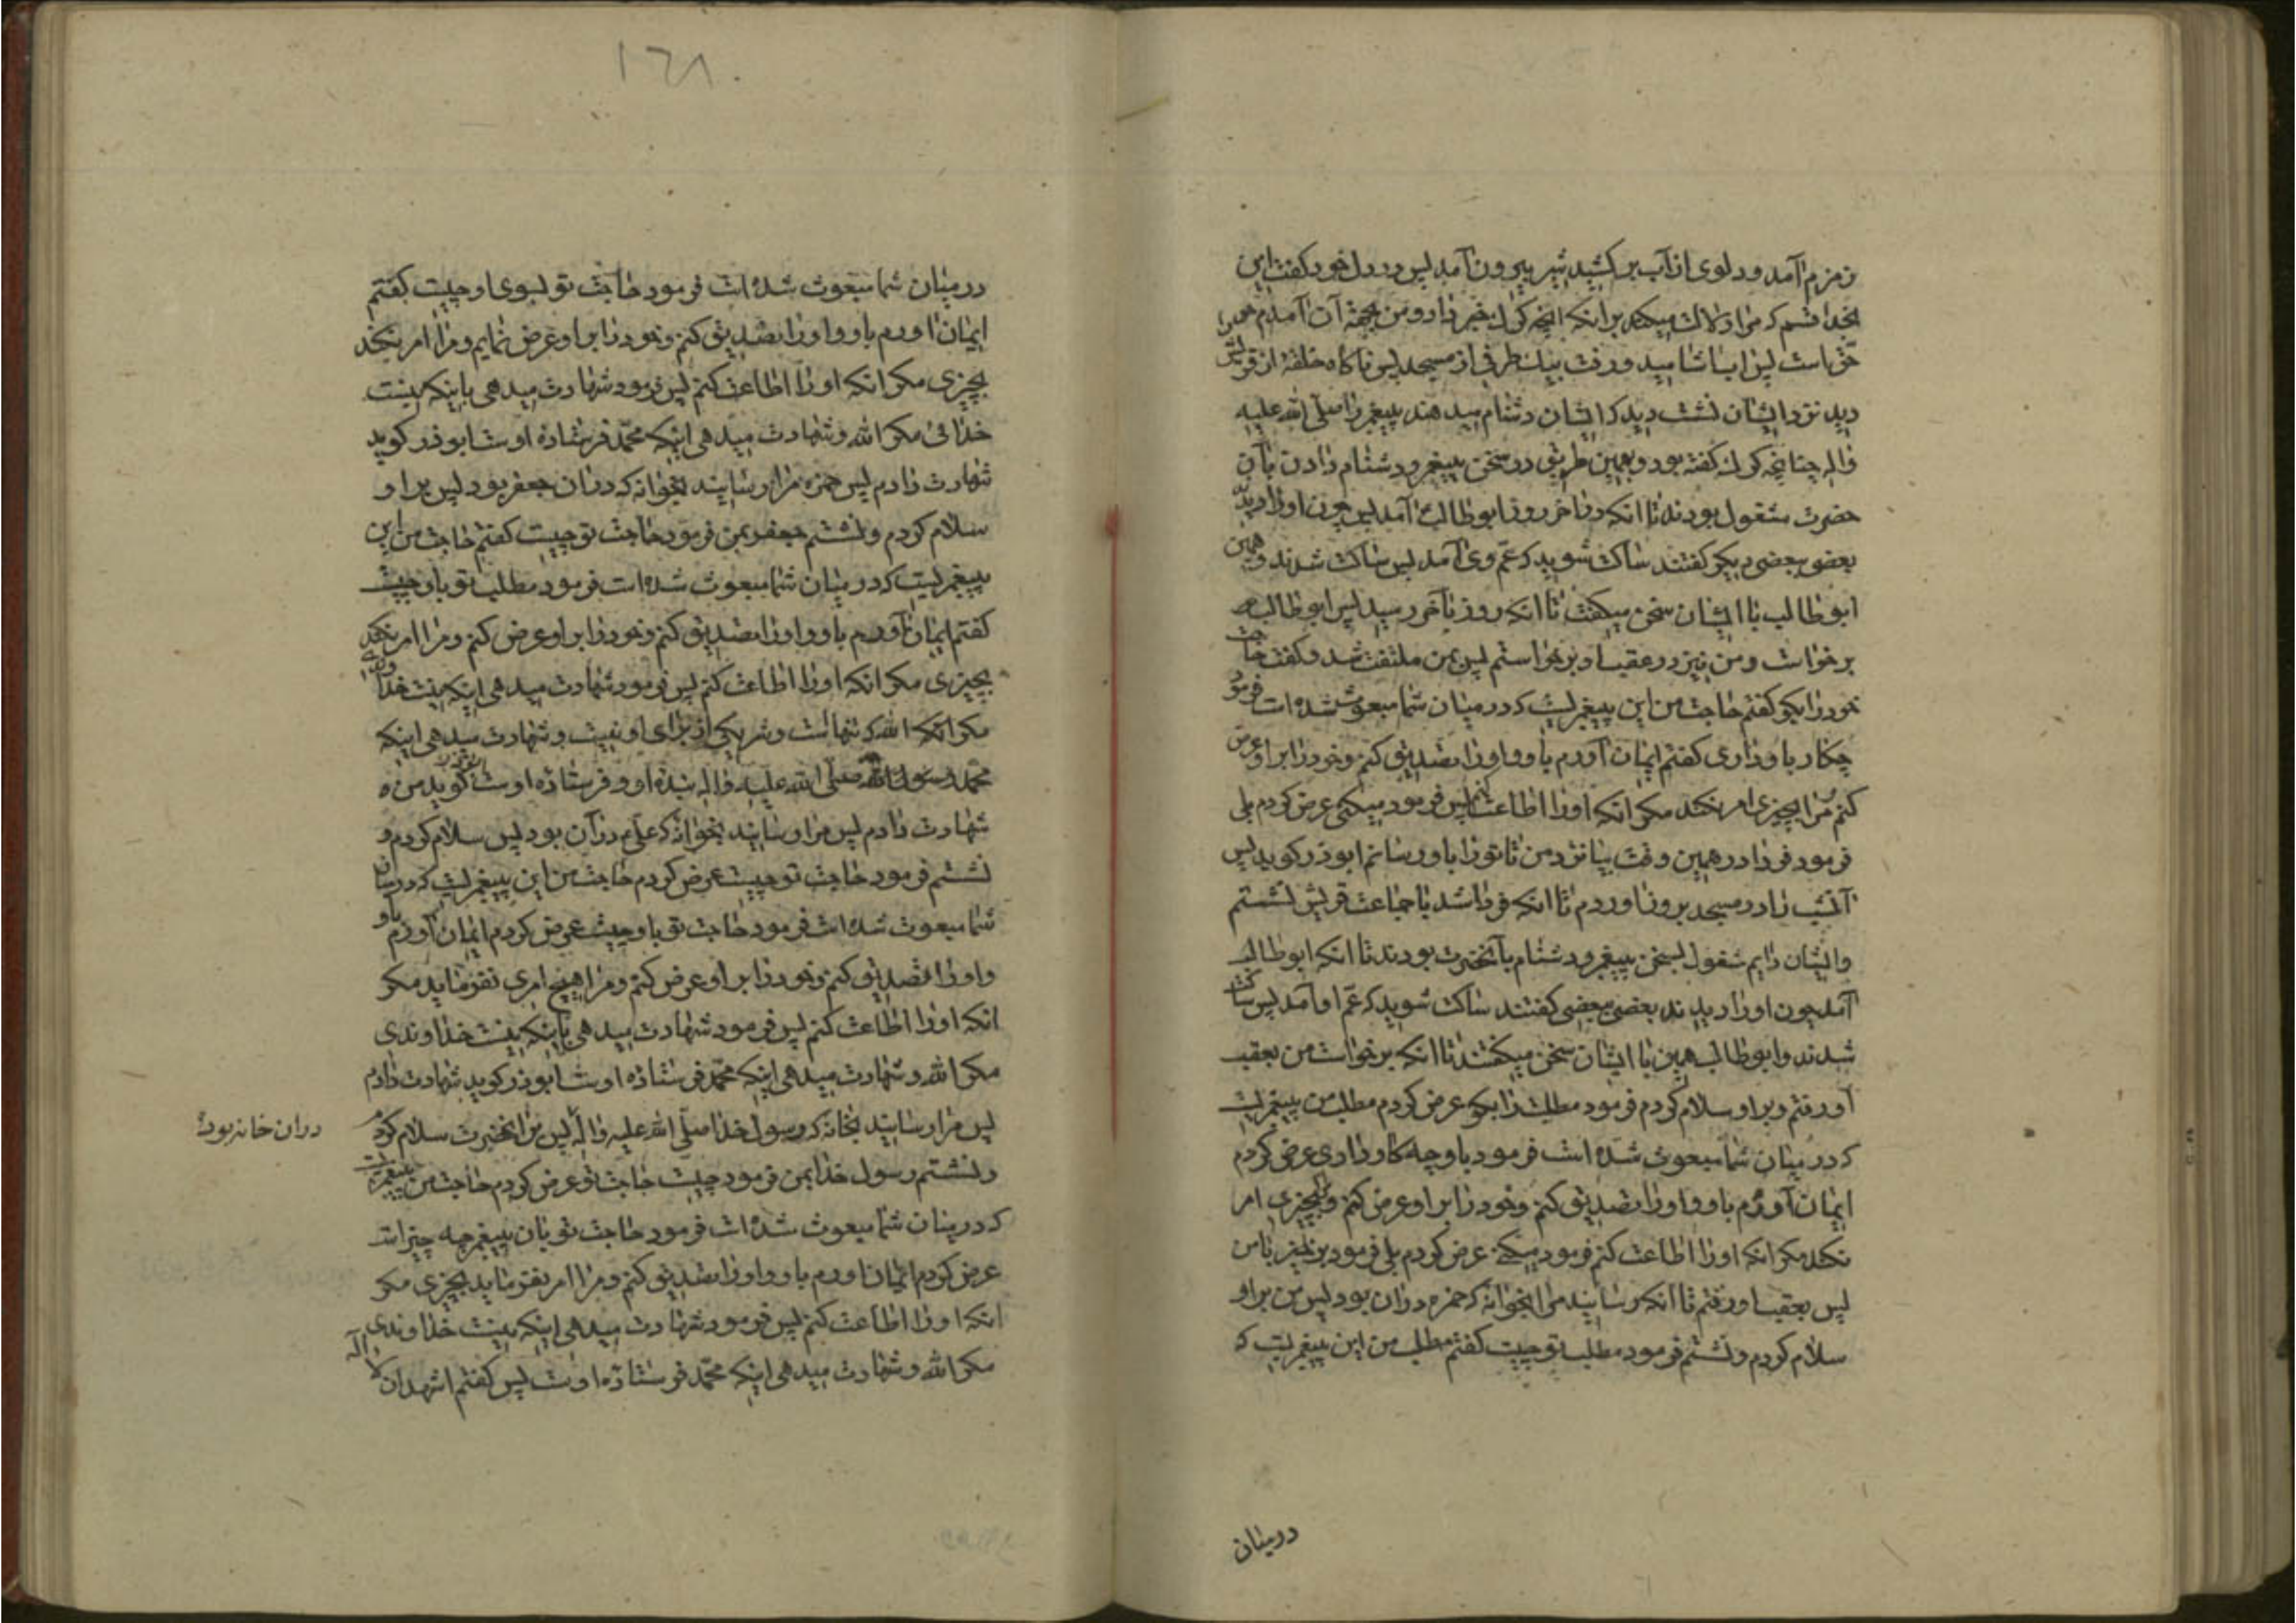 زمزم آمد و دلوی از آب بر کشید شیر بیرون آمد پس در دل خود گفت این
بخدا قسم که مرا دلالت میکند بر آنکه آنچه گرک خبر داد و من بجهة آن آمدم همه
حق است پس آب آشامید و رفت بیک طرفی از مسجد پس ناکاه حلقهٔ از قریش
دید نزد ایشان نشست دید که ایشان دشنام میدهند پیغمبر را صلی الله علیه
و اله چنانچه کرک کفته بود و بهمین طریق در سخن پیغمبر و دشنام دادن بآن
حضرت مشغول بودند تا انکه در آخر روز ابوطالب آمد پس چون او را دید
بعضی ببعضی دیکر کفتند ساکت شوید که عم وی آمد پس ساکت شدند و همین
ابوطالب با ایشان سخن میکفت تا انکه روز بآخر رسید پس ابوطالب
برخواست و من نیز در عقب او برخواستم پس بمن ملتفت شد و کفت حاجت
خود را بکو کفتم حاجت من این پیغمبریست که در میان شما مبعوث شده است فرمود
چکار با و داری کفتم ایمان آورم باو و او را تصدیق کنم و خود را بر او عرض
کنم و مرا بچیزی امر نکند مکر انکه او را اطاعت کنم پس فرمود میکنی عرض کردم بلی
فرمود فردا در همین وقت بیا نزد من تا تو را باو رسانم ابوذر کوید پس
آنشب را در مسجد بروز آوردم تا انکه فردا شد با جماعت قریش نشستم
و ایشان دایم مشغول بسخن پیغمبر و دشنام بآنحضرت بودند تا انکه ابوطالب
آمد چون او را دیدند بعضی ببعضی کفتند ساکت شوید که عم او آمد پس ساکت
شدند و ابوطالب همین با ایشان سخن میکفتند تا انکه برخواست من بعقب
او رفتم و بر او سلام کردم فرمود مطلبت را بکو عرض کردم مطلب من پیغمبریست
که در میان شما مبعوث شده است فرمود باو چه کار داری عرض کردم
ایمان آورم باو و او را تصدیق کنم و خود را بر او عرض کنم و مرا بچیزی امر
نکند مکر انکه او را اطاعت کنم فرمود میکنی عرض کردم بلی فرمود برخیز با من
پس بعقب او رفتم تا انکه رسانید مرا بخوانه که حمزه در ان بود پس من بر او
سلام کردم و نشستم فرمود مطلب تو چیست کفتم مطلب من این پیغمبریست که
در میان
۱۶۸
در میان شما مبعوث شده است فرمود حاجت تو بسوی او چیست کفتم
ایمان اورم باو و او را تصدیق کنم و خود را بر او عرض نمایم و مرا امر نکند
بچیزی مکر انکه او را اطاعت کنم پس فرمود شهادت میدهی باینکه نیست
خدائی مکر الله و شهادت میدهی اینکه محمّد فرستاده اوست ابوذر کوید
شهادت دادم پس حمزه مرا رسانید بخوانه که در ان جعفر بود پس بر او
سلام کردم و نشستم جعفر بمن فرمود حاجت تو چیست کفتم حاجت من این
پیغمبریست که در میان شما مبعوث شده است فرمود مطلب تو باو چیست
کفتم ایمان آورم باو و او را تصدیق کنم و خود را بر او عرض کنم و مرا امر نکند
بچیزی مکر انکه او را اطاعت کنم پس فرمود شهادت میدهی اینکه نیست خداوندی
مکر انکه الله که تنهاست و شریکی از برای او نیست و شهادت میدهی اینکه
محمّد رسول الله صلّی الله علیه و اله بنده او و فرستاده اوست ابوذر کوید من
شهادت دادم پس مرا رسانید بخوانه که علی ع در آن بود پس سلام کردم و
نشستم فرمود حاجت تو چیست عرض کردم حاجت من این پیغمبریست که در میان
شما مبعوث شده است فرمود حاجت تو باو چیست عرض کردم ایمان آورم باو
و او را تصدیق کنم و خود را بر او عرض کنم و مرا هیچ امری نفرماید مکر
انکه او را اطاعت کنم پس فرمود شهادت میدهی باینکه نیست خداوندی
مکر الله و شهادت میدهی اینکه محمّد فرستاده اوست ابوذر کوید شهادت دادم
پس مرا رسانید بخانه که رسول خدا صلّی الله علیه و اله پس من بر انحضرت سلام کردم
در ان خانه بود
و نشستم رسول خدا بمن فرمود چیست حاجت تو عرض کردم حاجت من پیغمبریست
که در میان شما مبعوث شده است فرمود حاجت تو بان پیغمبر چه چیز است
عرض کردم ایمان اورم باو و او را تصدیق کنم و مرا امر نفرماید بچیزی مکر
انکه او را اطاعت کنم پس فرمود شهادت میدهی اینکه نیست خداوندی
مکر الله و شهادت میدهی اینکه محمّد فرستاده اوست پس کفتم اشهد ان لا اله